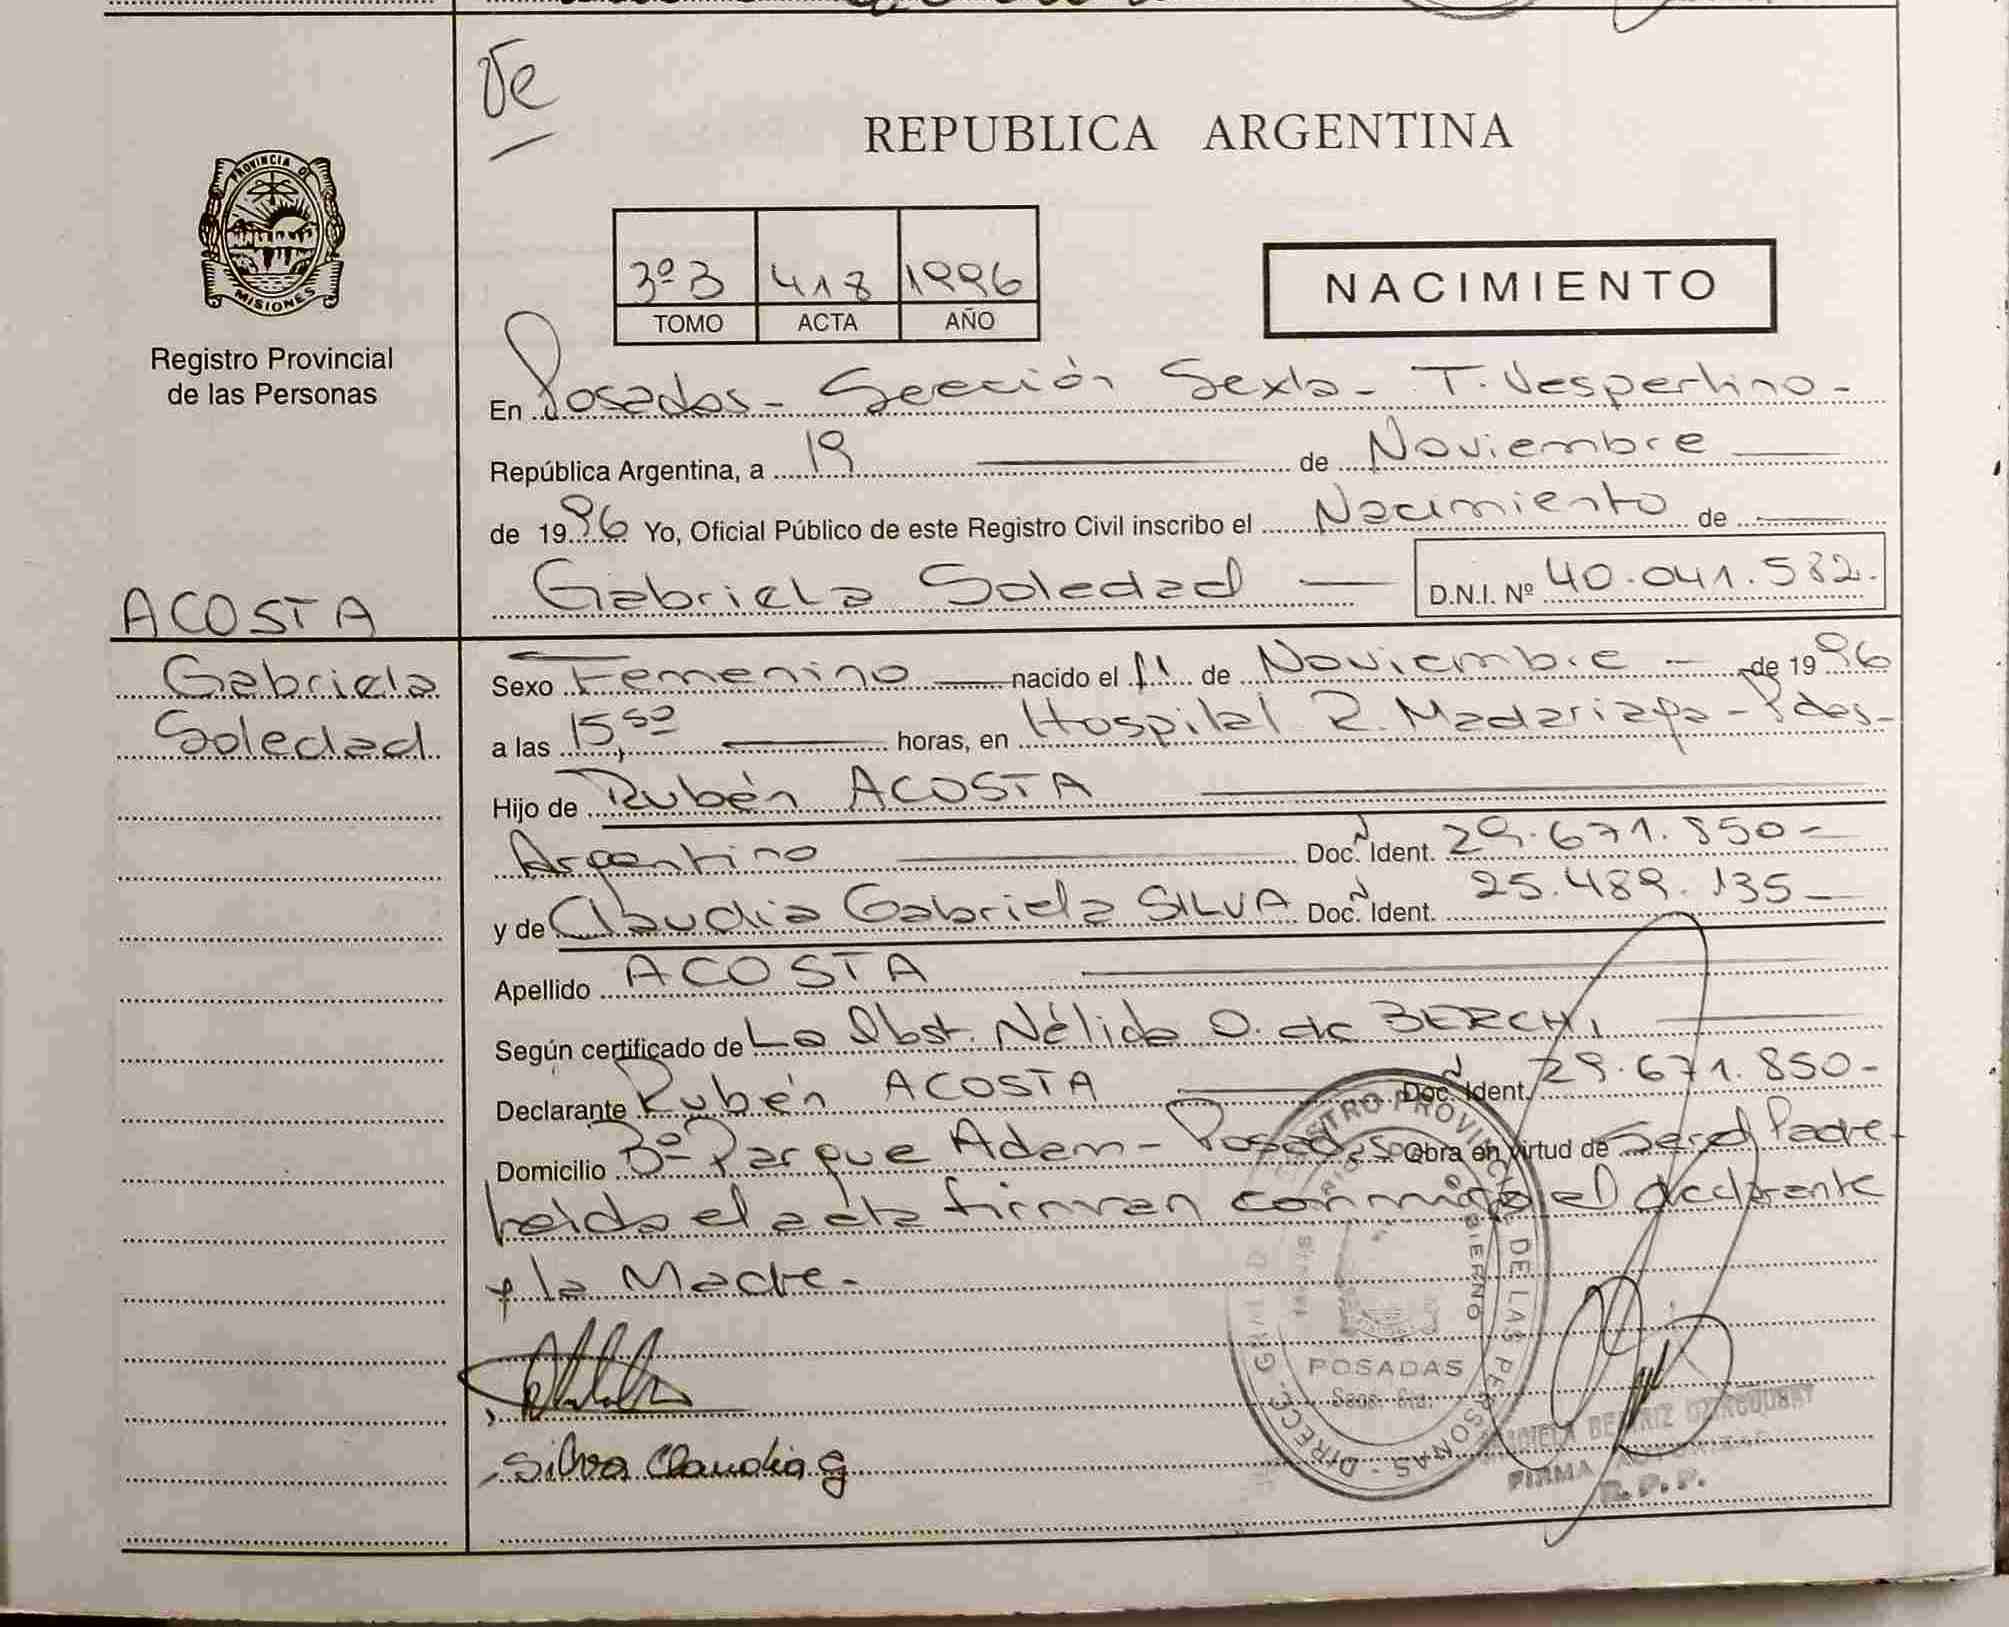 Ve
REPUBLICA ARGENTINA
PROVINCIA DE
MISIONES
Registro Provincial
de las Personas
3º B 418 1996
TOMO ACTA AÑO
NACIMIENTO
En Posadas - Sección Sexta - T. Vespertino -
República Argentina, a 19 de Noviembre
de 1996 Yo, Oficial Público de este Registro Civil inscribo el Nacimiento de
Gabriela Soledad D.N.I. Nº 40.041.532.-
ACOSTA
Gabriela
Soledad
Sexo Femenino nacido el 11 de Noviembre - de 1996
a las 15,50 horas, en Hospital R. Madariaga - Pdas -
Hijo de Rubén ACOSTA
Argentino Doc. Ident. 29.671.850 -
y de Claudia Gabriela SILVA Doc. Ident. 25.489.135 -
Apellido ACOSTA
Según certificado de La Obst. Nélida O. de BERCHI
Declarante Rubén ACOSTA Doc. Ident. 29.671.850 -
Domicilio Bº Parque Adam - Posadas Obra en virtud de Ser el Padre -
Leída el acta firman conmigo el declarante
y la Madre -
Silva Claudia g
POSADAS
DE LAS PERSONAS - DIREC
BEATRIZ
FIRMA
R.P.P.